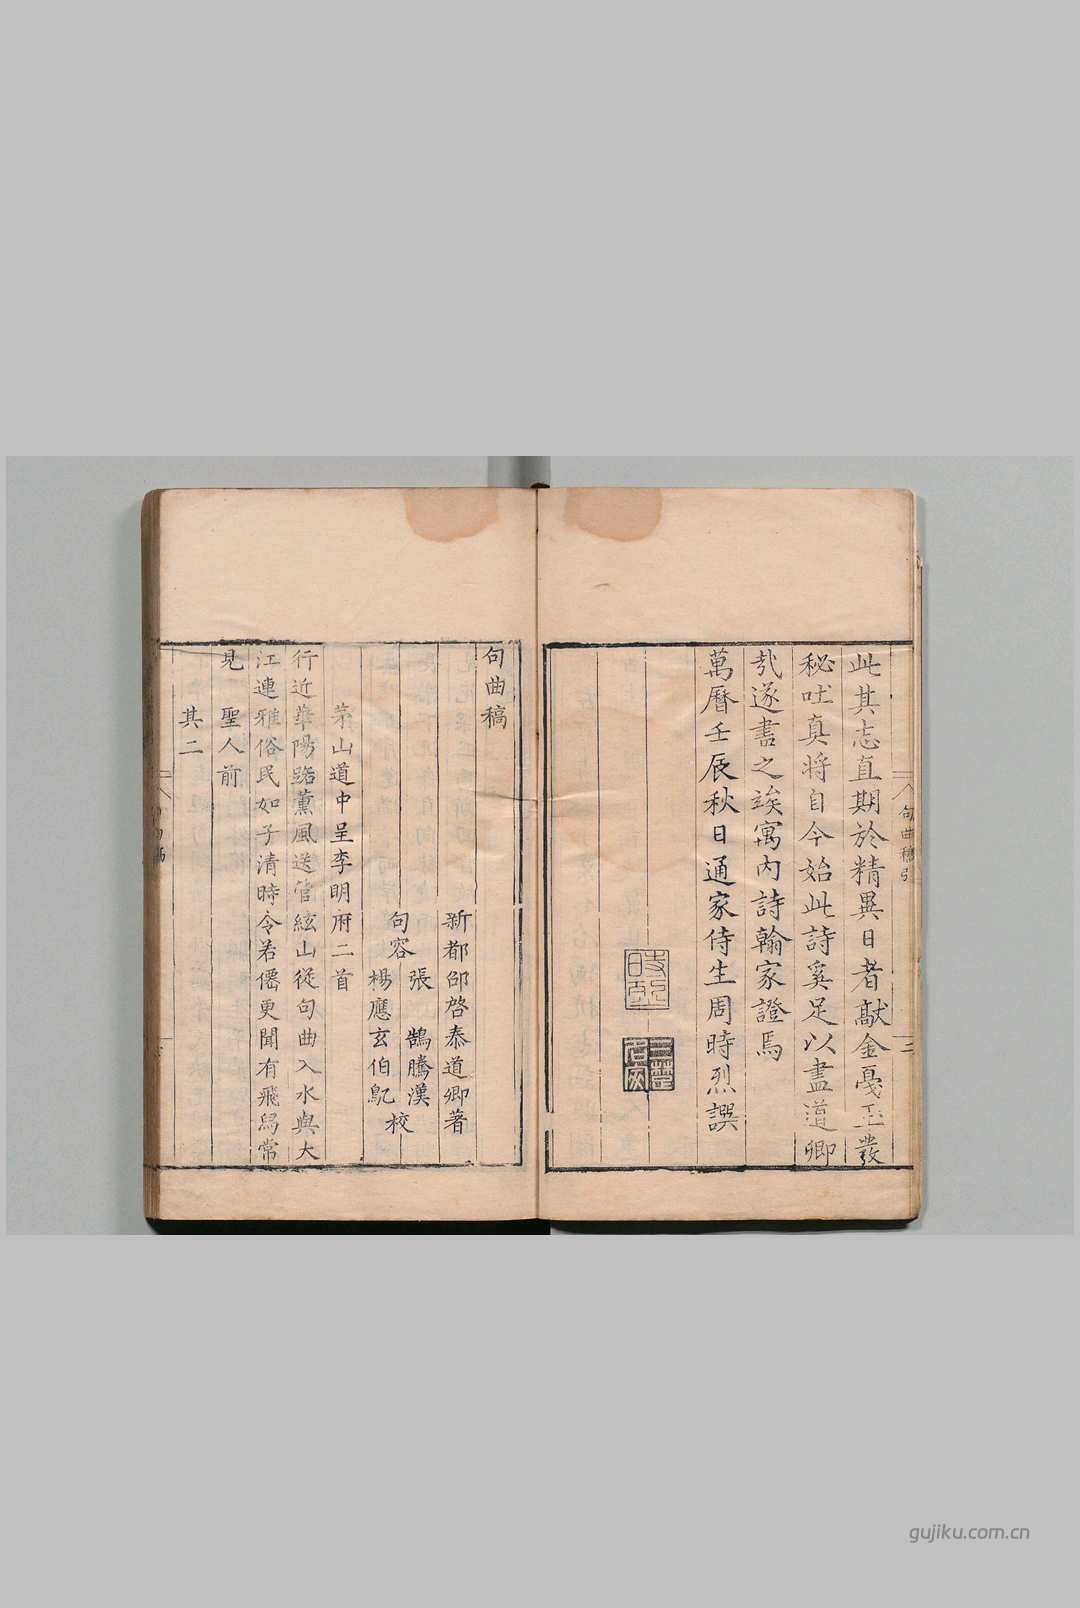 此其志直期於精異日者獻金戞玉發
秘吐真將自今始此詩奚足以盡道卿
㦲遂書之竢寓內詩翰家證焉
萬曆壬辰秋日通家侍生周時烈譔
句曲稿引
二
句曲稿
新都邵啓泰道卿著
句容
張　鵠騰漢
楊應玄伯
校
茅山道中呈李明府二首
行近華陽路薰風送管絃山從句曲入水與大
江連雅俗民如子清時令若僊更聞有飛舄常
見聖人前
其二
gujiku.com.cn